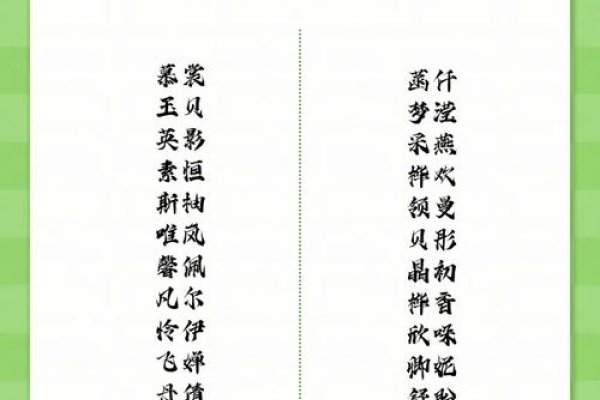 慕裳
玉贝
英影
素恒
斯柚
唯凤
馨佩
凡尔
怜伊
飞婵
丹倩
菡仟
梦滢
采燕
桦欢
领曼
贝彤
晶初
桦香
欣咪
卿妮